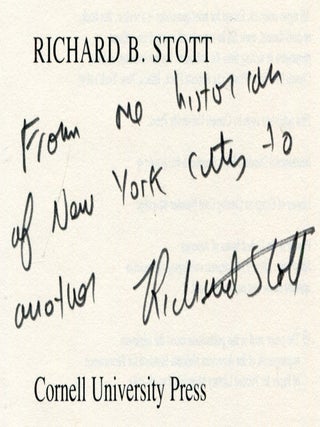 RICHARD B. STOTT
From one historian
of New York City to
another Richard Stott
Cornell University Press